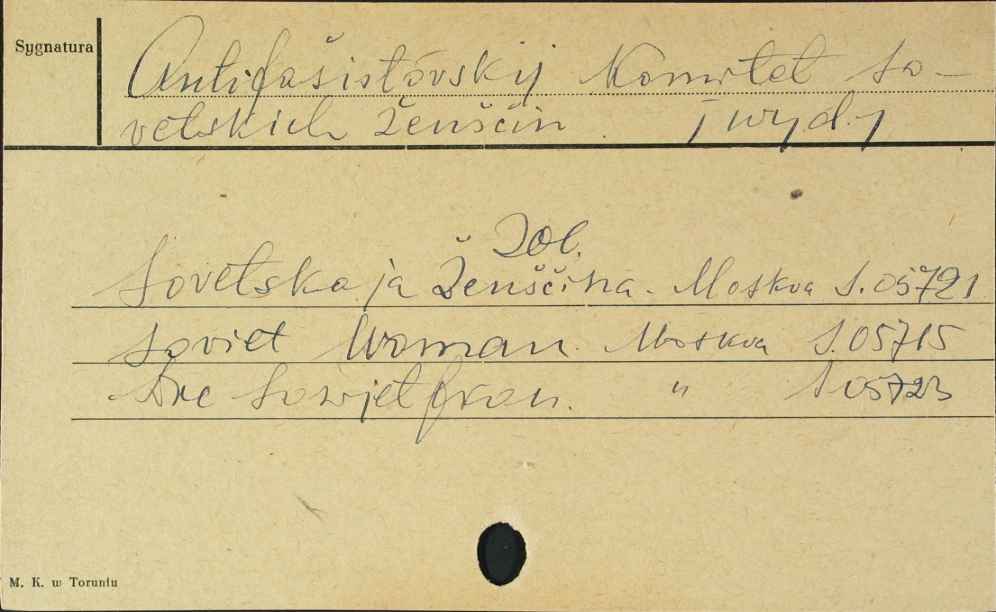 Sygnatura
Antifašistovskij Komitet so-
vetskich ženščin. [wyd.]
Zob.
Sovetskaja Ženščina. Moskva S.05721
Soviet Woman. Moskva S.05715
Die Sowjetfrau. " S.05723
M. K. w Toruniu